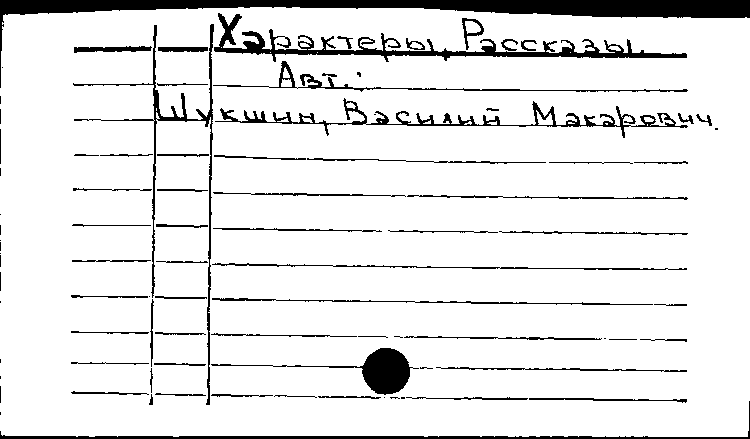 Характеры. Рассказы.
Авт.:
Шукшин, Василий Макарович.